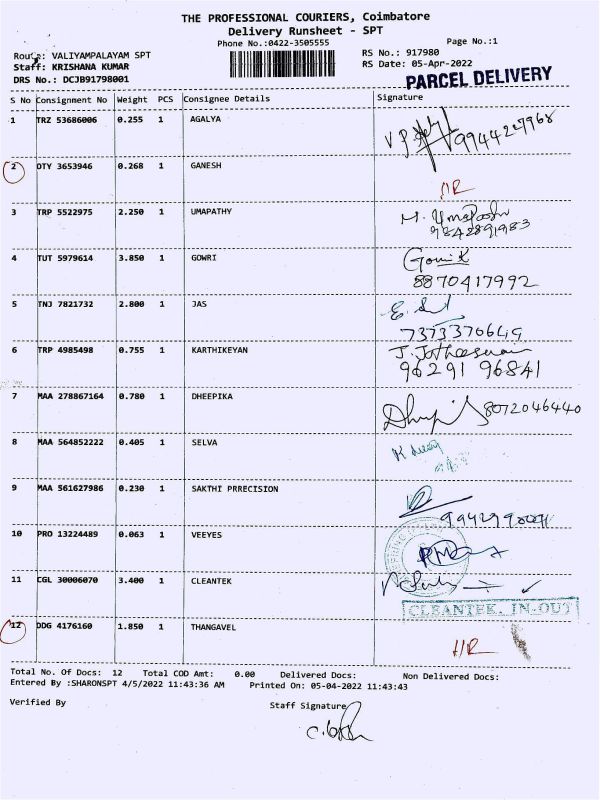 THE PROFESSIONAL COURIERS, Coimbatore
Delivery Runsheet - SPT
Phone No.:0422-3505555
Page No.:1
Route: VALIYAMPALAYAM SPT
RS No.: 917980
Staff: KRISHANA KUMAR
RS Date: 05-Apr-2022
DRS No.: DCJB91798001
PARCEL DELIVERY
S No Consignment No Weight PCS Consignee Details Signature
1 TRZ 53686006 0.255 1 AGALYA 9944227968
2 DTY 3653946 0.268 1 GANESH
3 TRP 5522975 2.250 1 UMAPATHY M. Umapathy
9842891983
4 TUT 5979614 3.850 1 GOWRI Gowri K
8870417992
5 TNJ 7821732 2.800 1 JAS
7373370649
6 TRP 4985498 0.755 1 KARTHIKEYAN
96291 96841
7 MAA 278867164 0.780 1 DHEEPIKA 8072046440
8 MAA 564852222 0.405 1 SELVA
9 MAA 561627986 0.230 1 SAKTHI PRRECISION
10 PRO 13224489 0.063 1 VEEYES
11 CGL 30006070 3.400 1 CLEANTEK
CLEANTEK. IN-OUT
12 DDG 4176160 1.850 1 THANGAVEL
Total No. Of Docs: 12 Total COD Amt: 0.00 Delivered Docs: Non Delivered Docs:
Entered By :SHARONSPT 4/5/2022 11:43:36 AM Printed On: 05-04-2022 11:43:43
Verified By Staff Signature